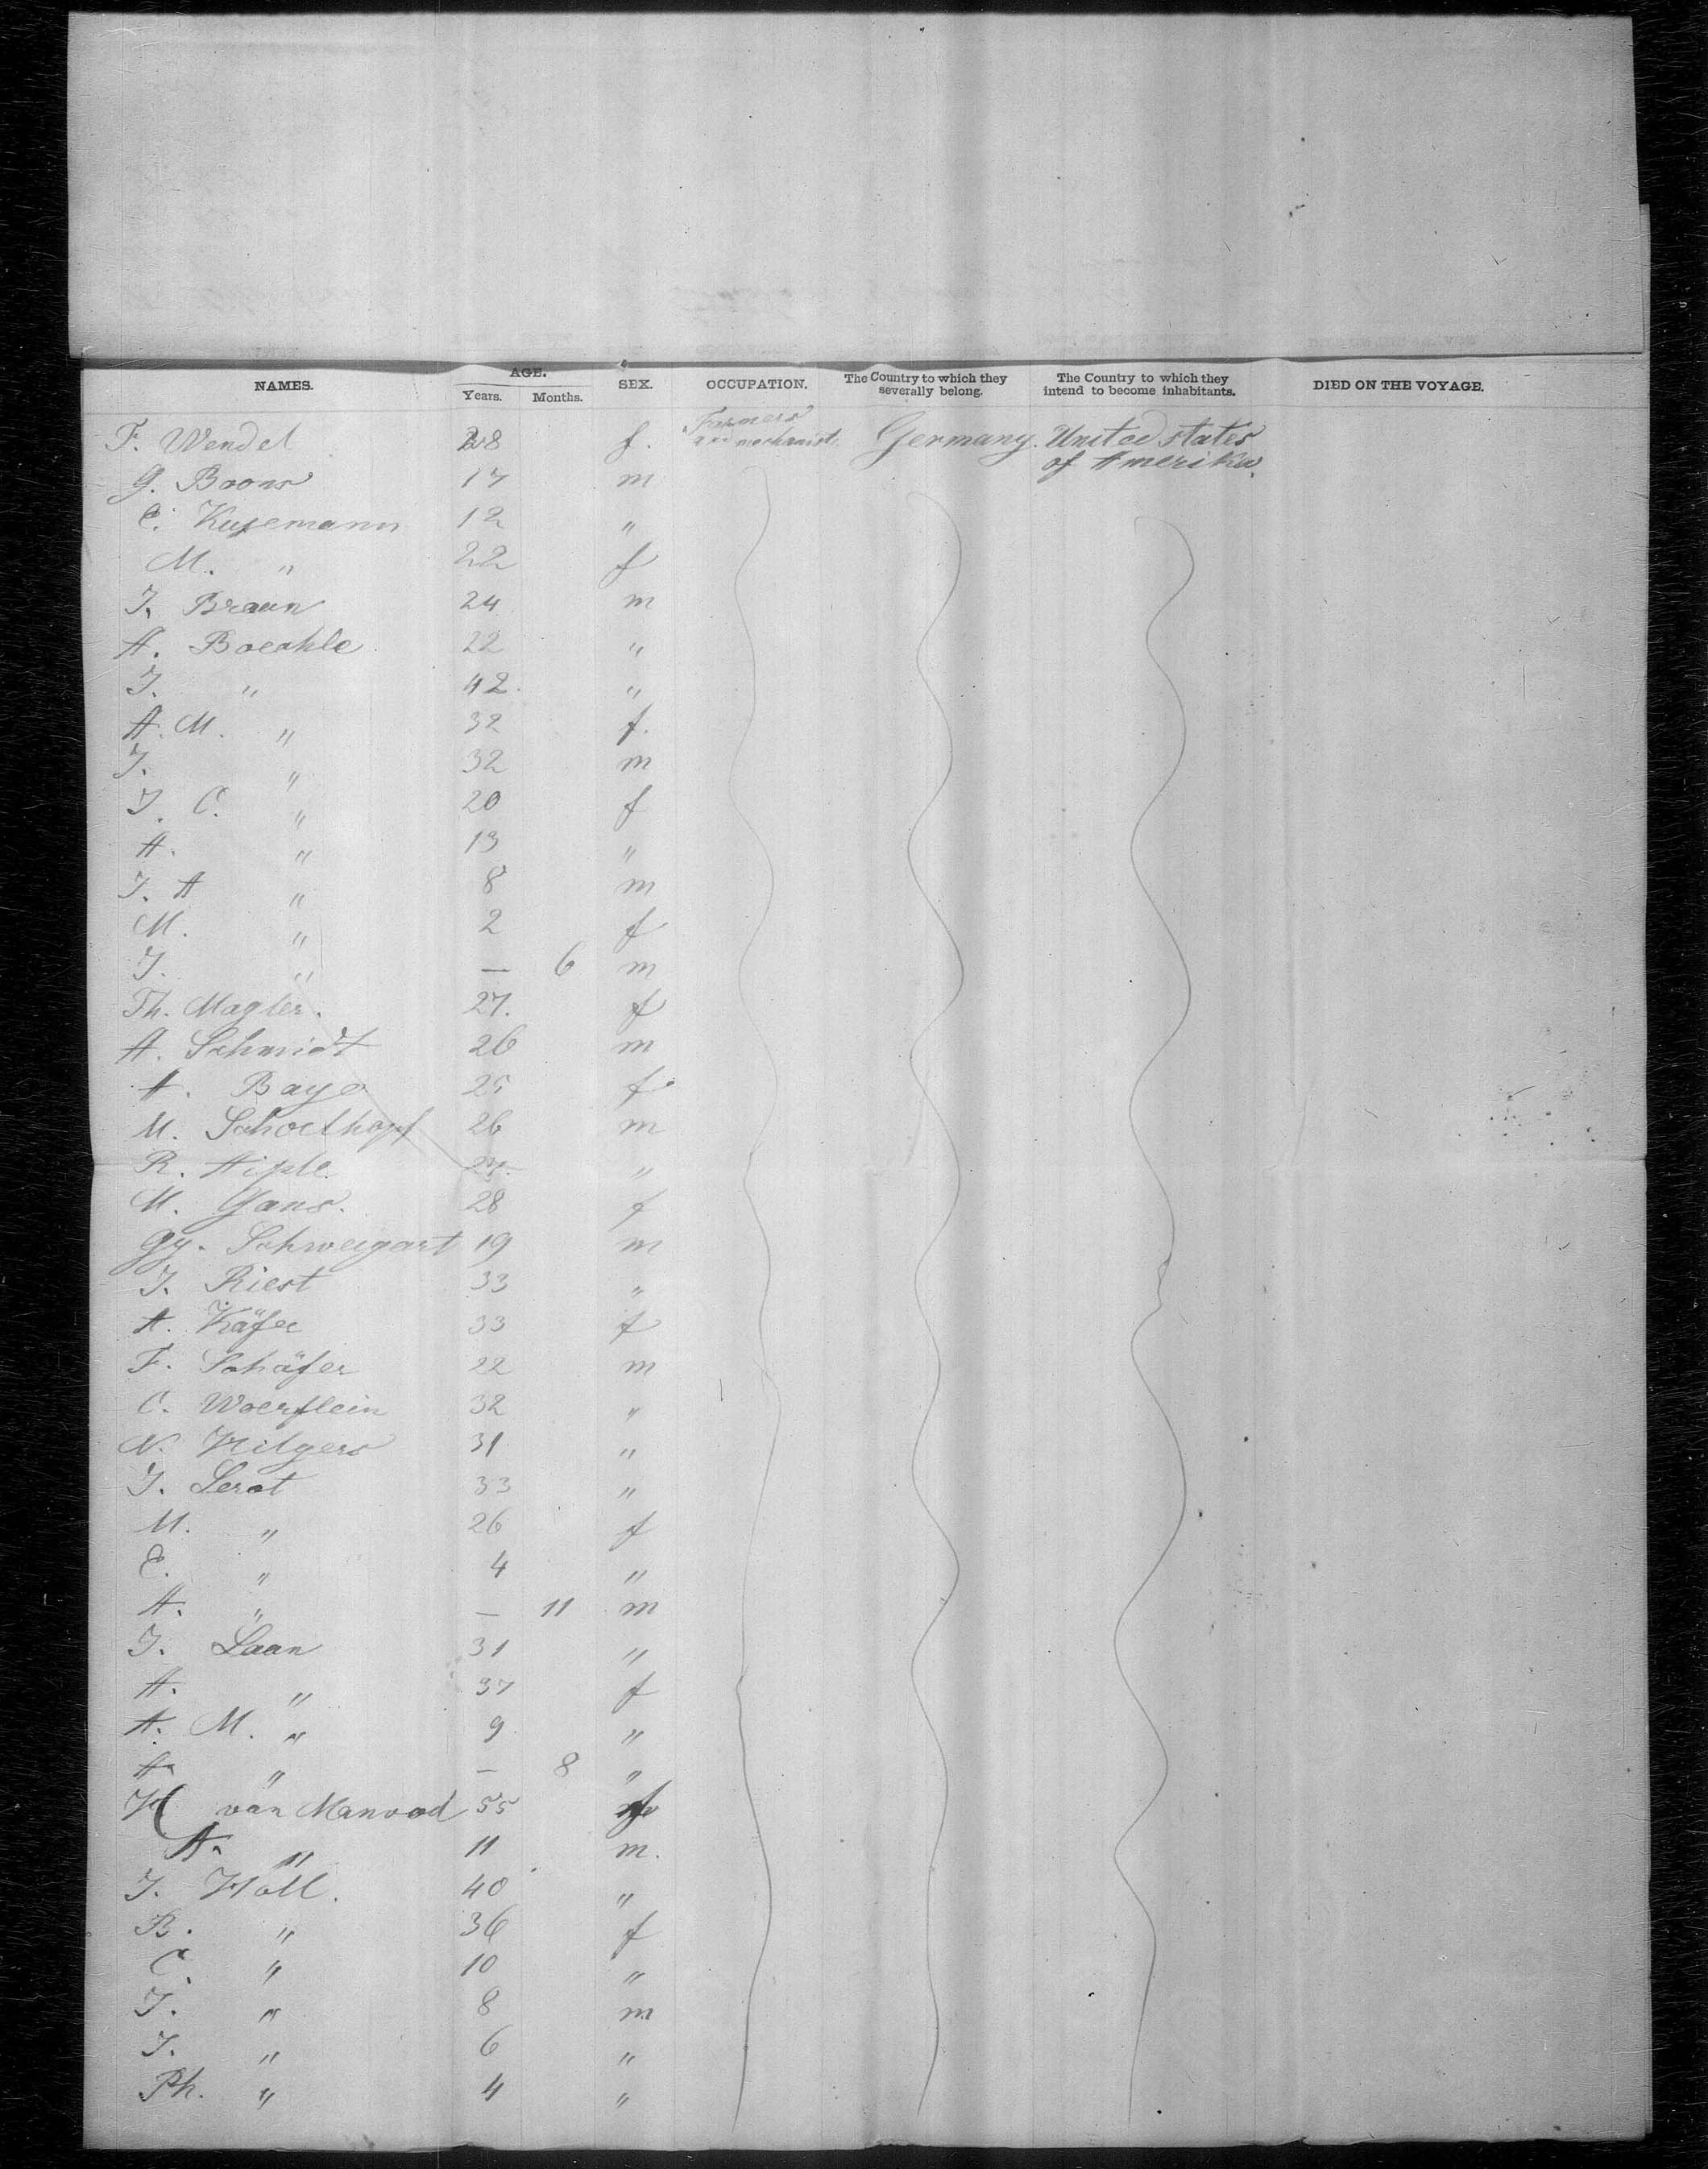 NAMES. AGE. SEX. OCCUPATION. The Country to which they severally belong. The Country to which they intend to become inhabitants. DIED ON THE VOYAGE.
Years. Months.
F. Wendel 28 f. Farmers and mechanist. Germany. United states of Amerika.
G. Boons 17 m
C. Kusemann 12 "
M. " 22 f
J. Braun 24 m
A. Boeahle 22 "
J. " 42 "
A. M. " 32 f.
J. " 32 m
J. C. " 20 f
A. " 13 "
J. A " 8 m
M. " 2 f
J. " — 6 m
Th. Magler. 27. f
A. Schmidt 26 m
A. Baye 25 f.
M. Schoelhopf 26 m
R. Aiple "
M. Gans. 28 f
Gg. Schweigart 19 m
J. Riest 33 "
A. Käfer 33 f
F. Schäfer 22 m
C. Woerflein 32 "
N. Hilgers 31 "
J. Lerot 33 "
M. " 26 f
E. " 4 "
A. " — 11 m
J. Laan 31 "
A. " 37 f
A. M. " 9 "
A. " — 8 "
H van Manvod 55 f
A. " 11 m.
J. Holl. 40 "
B. " 36 f
C. " 10 "
J. " 8 m
J. " 6 "
Ph. " 4 "